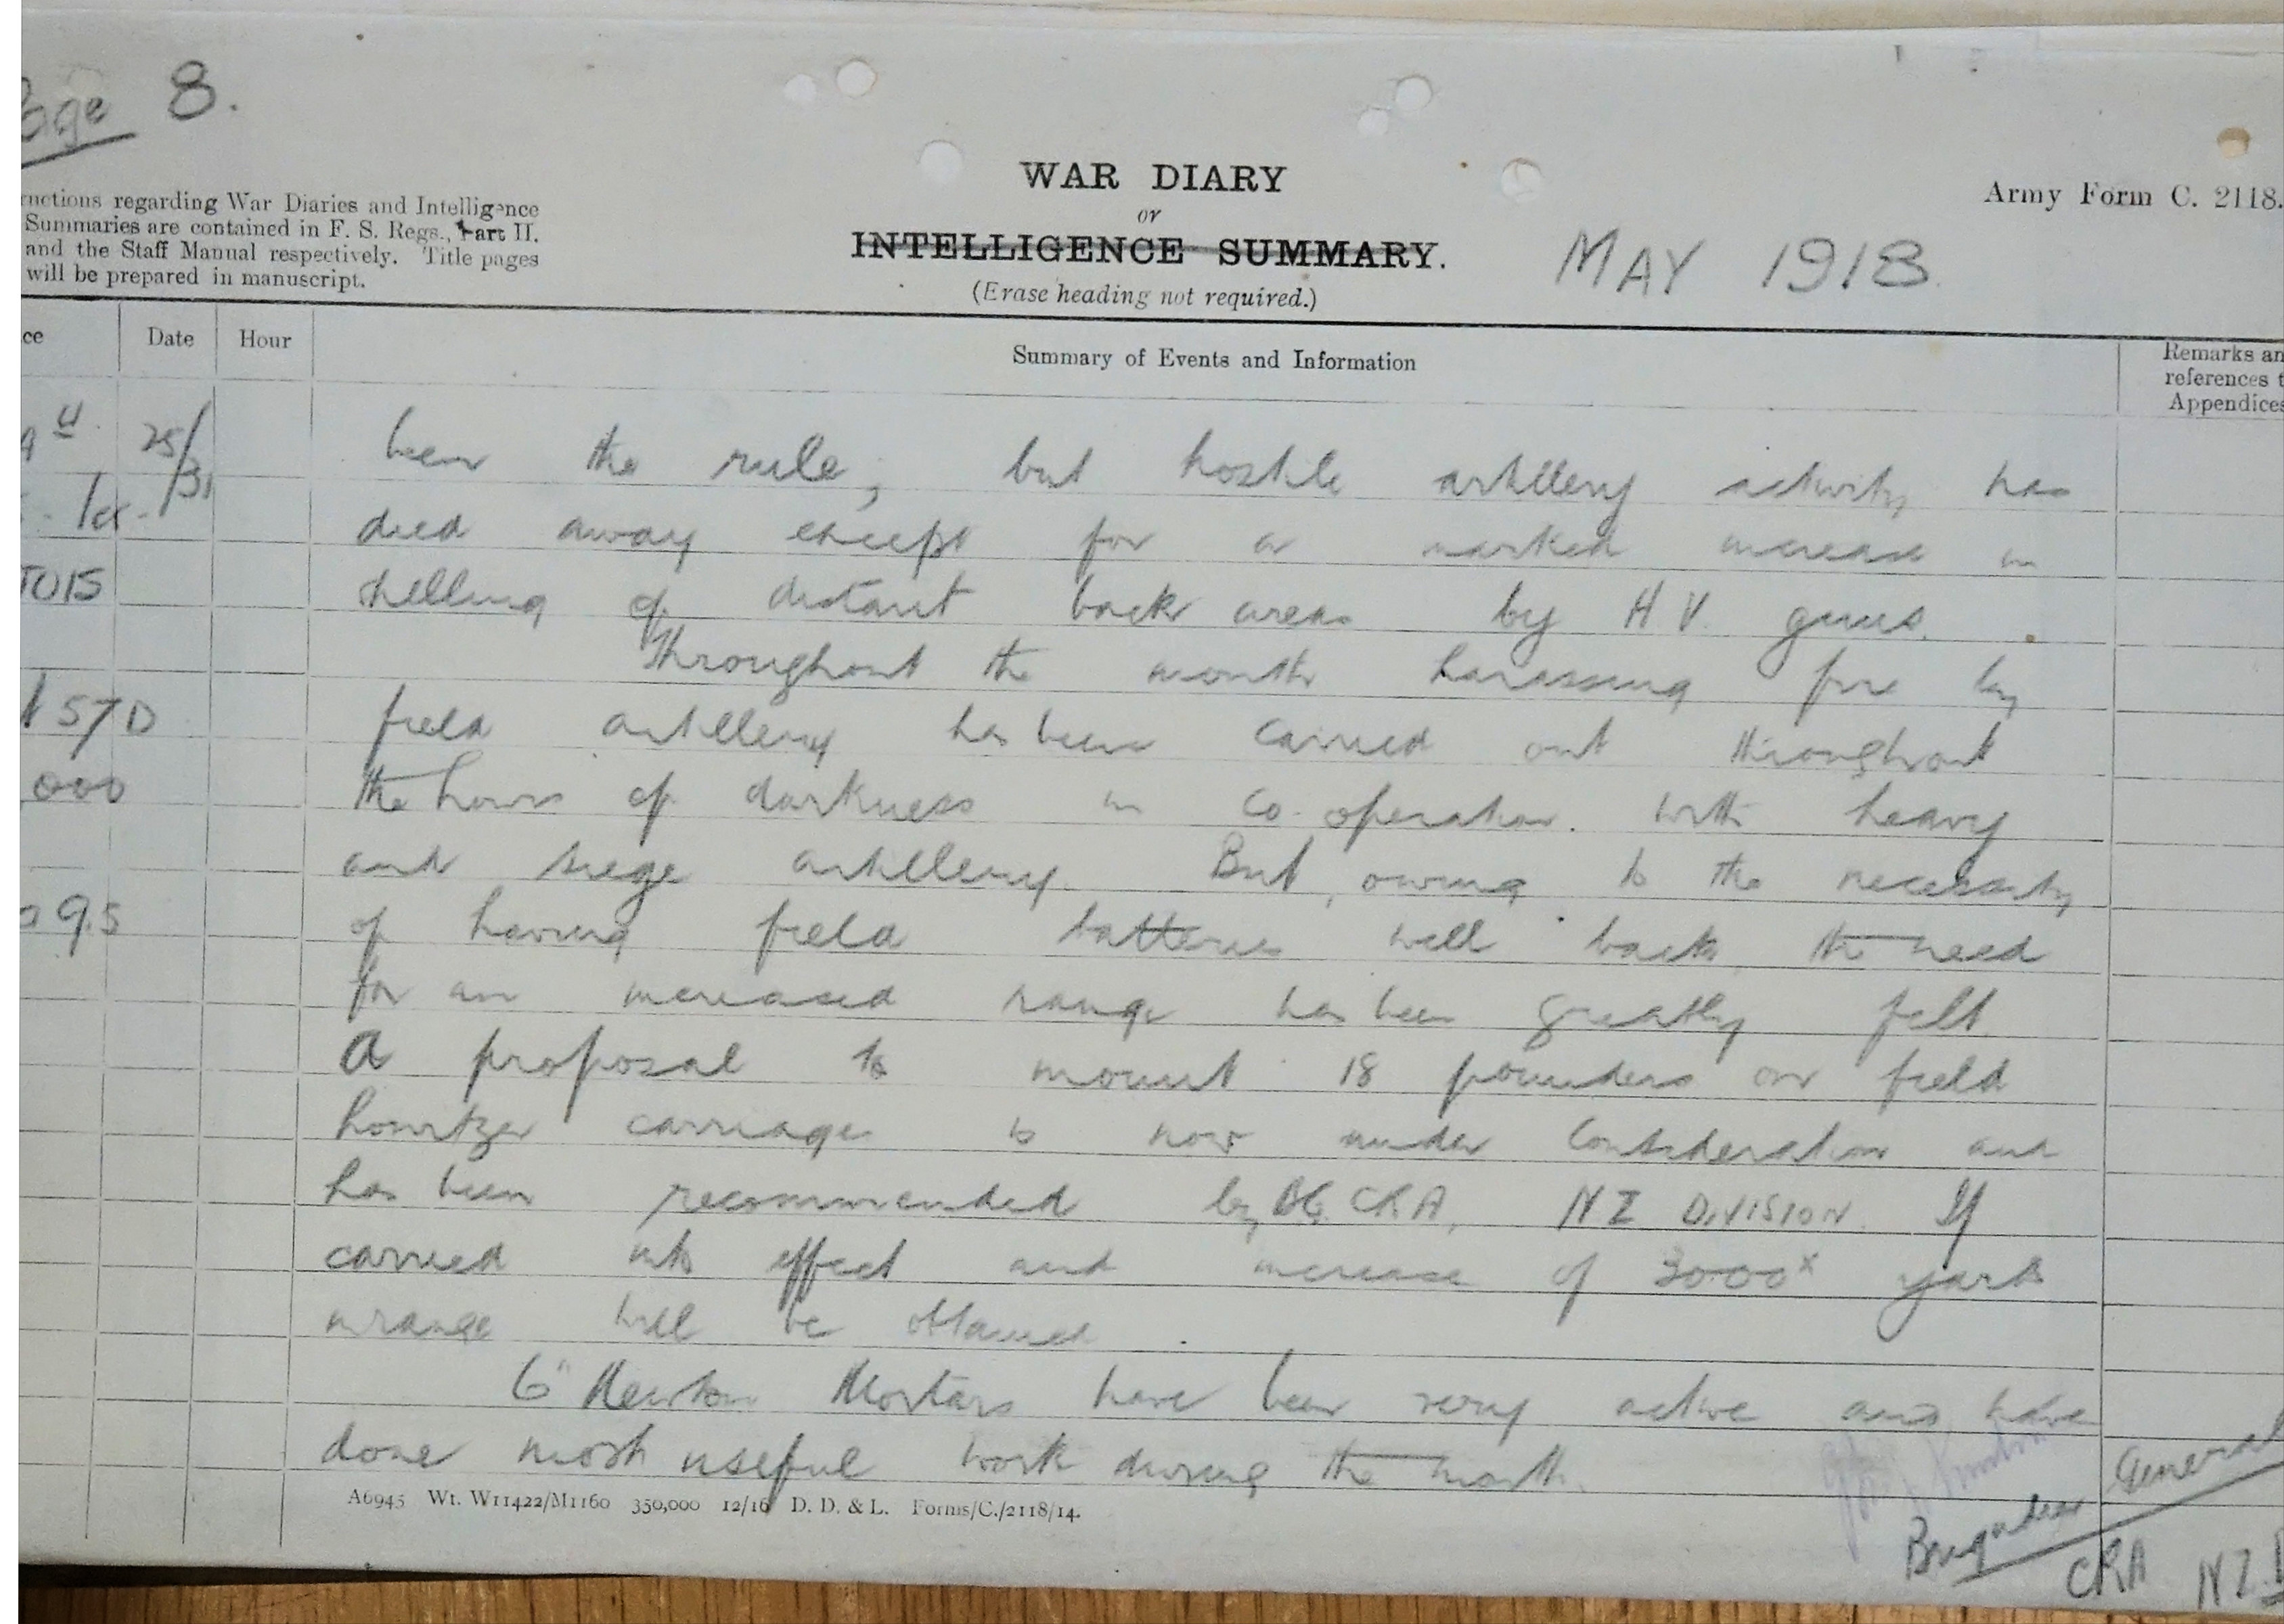 Page 8.
WAR DIARY
or
INTELLIGENCE SUMMARY.
(Erase heading not required.)
Army Form C. 2118.
MAY 1918.
uctions regarding War Diaries and Intelligence
Summaries are contained in F. S. Regs., Part II.
and the Staff Manual respectively. Title pages
will be prepared in manuscript.
ce Date Hour Summary of Events and Information
Remarks an
references t
Appendices
25/31
TOIS
57D
000
9.5
been the rule, but hostile artillery activity has
died away except for a marked increase in
shelling of distant back areas by H V. guns.
Throughout the month harassing fire by
field artillery has been carried out throughout
the hours of darkness in co-operation. with heavy
and siege artillery. But, owing to the necessity
of having field batteries well back, the need
for an increased range has been greatly felt.
A proposal to mount 18 pounders on field
howitzer carriages is now under consideration and
has been recommended by BG. CRA, NZ DIVISION. If
carried into effect and increase of 3000x yards
in range will be obtained.
6" Newton Mortars have been very active and have
done most useful work during the month.
A6945 Wt. W11422/M1160 350,000 12/16 D. D. & L. Forms/C./2118/14.
Brigadier General
CRA NZ